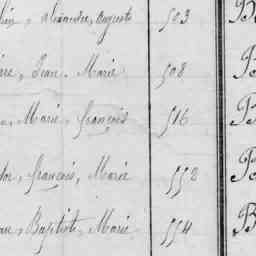 alexandre, auguste 503 B
Jean, Marie 508 B
Marie, françois 516 B
françois, Marie 552 B
Baptiste, Marie 554 B